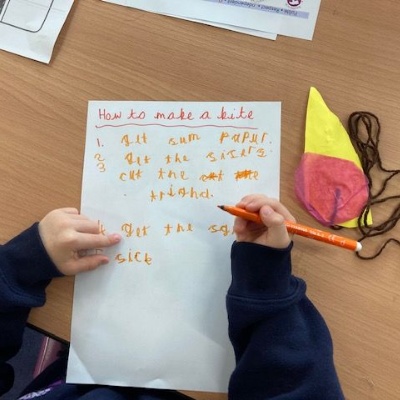 How to make a kite
1. Get sum papur.
2 Get the sisers
3 cut the
trighnd.
4. Get the
sick